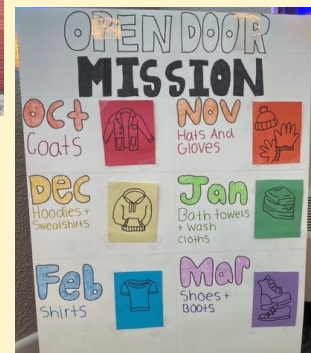 OPEN DOOR
MISSION
Oct
Coats
Nov
Hats And
Gloves
Dec
Hoodies +
Sweatshirts
Jan
Bath towels
+ wash
cloths
Feb
Shirts
Mar
Shoes +
Boots